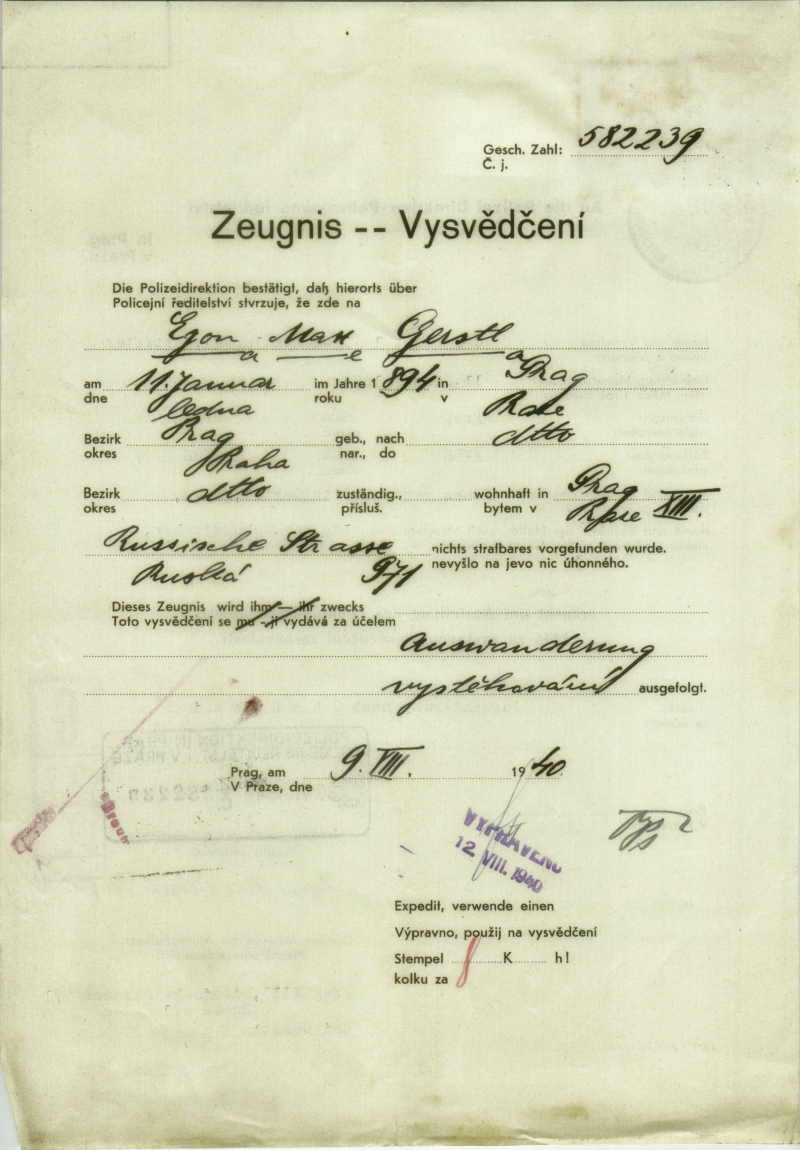 Gesch. Zahl: 582239
Č. j.
Zeugnis -- Vysvědčení
Die Polizeidirektion bestätigt, daß hierorts über
Policejní ředitelství stvrzuje, že zde na
Egon Max Gerstl
a e a
am 11. Januar im Jahre 1894 in Prag
dne ledna roku v Praze
Bezirk Prag geb., nach dtto
okres Praha nar., do
Bezirk dtto zuständig., wohnhaft in Prag
okres přísluš. bytem v Praze XIII.
Russische Strasse nichts strafbares vorgefunden wurde.
Ruská 971 nevyšlo na jevo nic úhonného.
Dieses Zeugnis wird ihm — ihr zwecks
Toto vysvědčení se mu - jí vydává za účelem
Auswanderung
vystěhování ausgefolgt.
Prag, am 9. VIII. 1940.
V Praze, dne
Braun
VYPRAVENO
12. VIII. 1940
Expedit, verwende einen
Výpravno, použij na vysvědčení
Stempel 8 K h!
kolku za